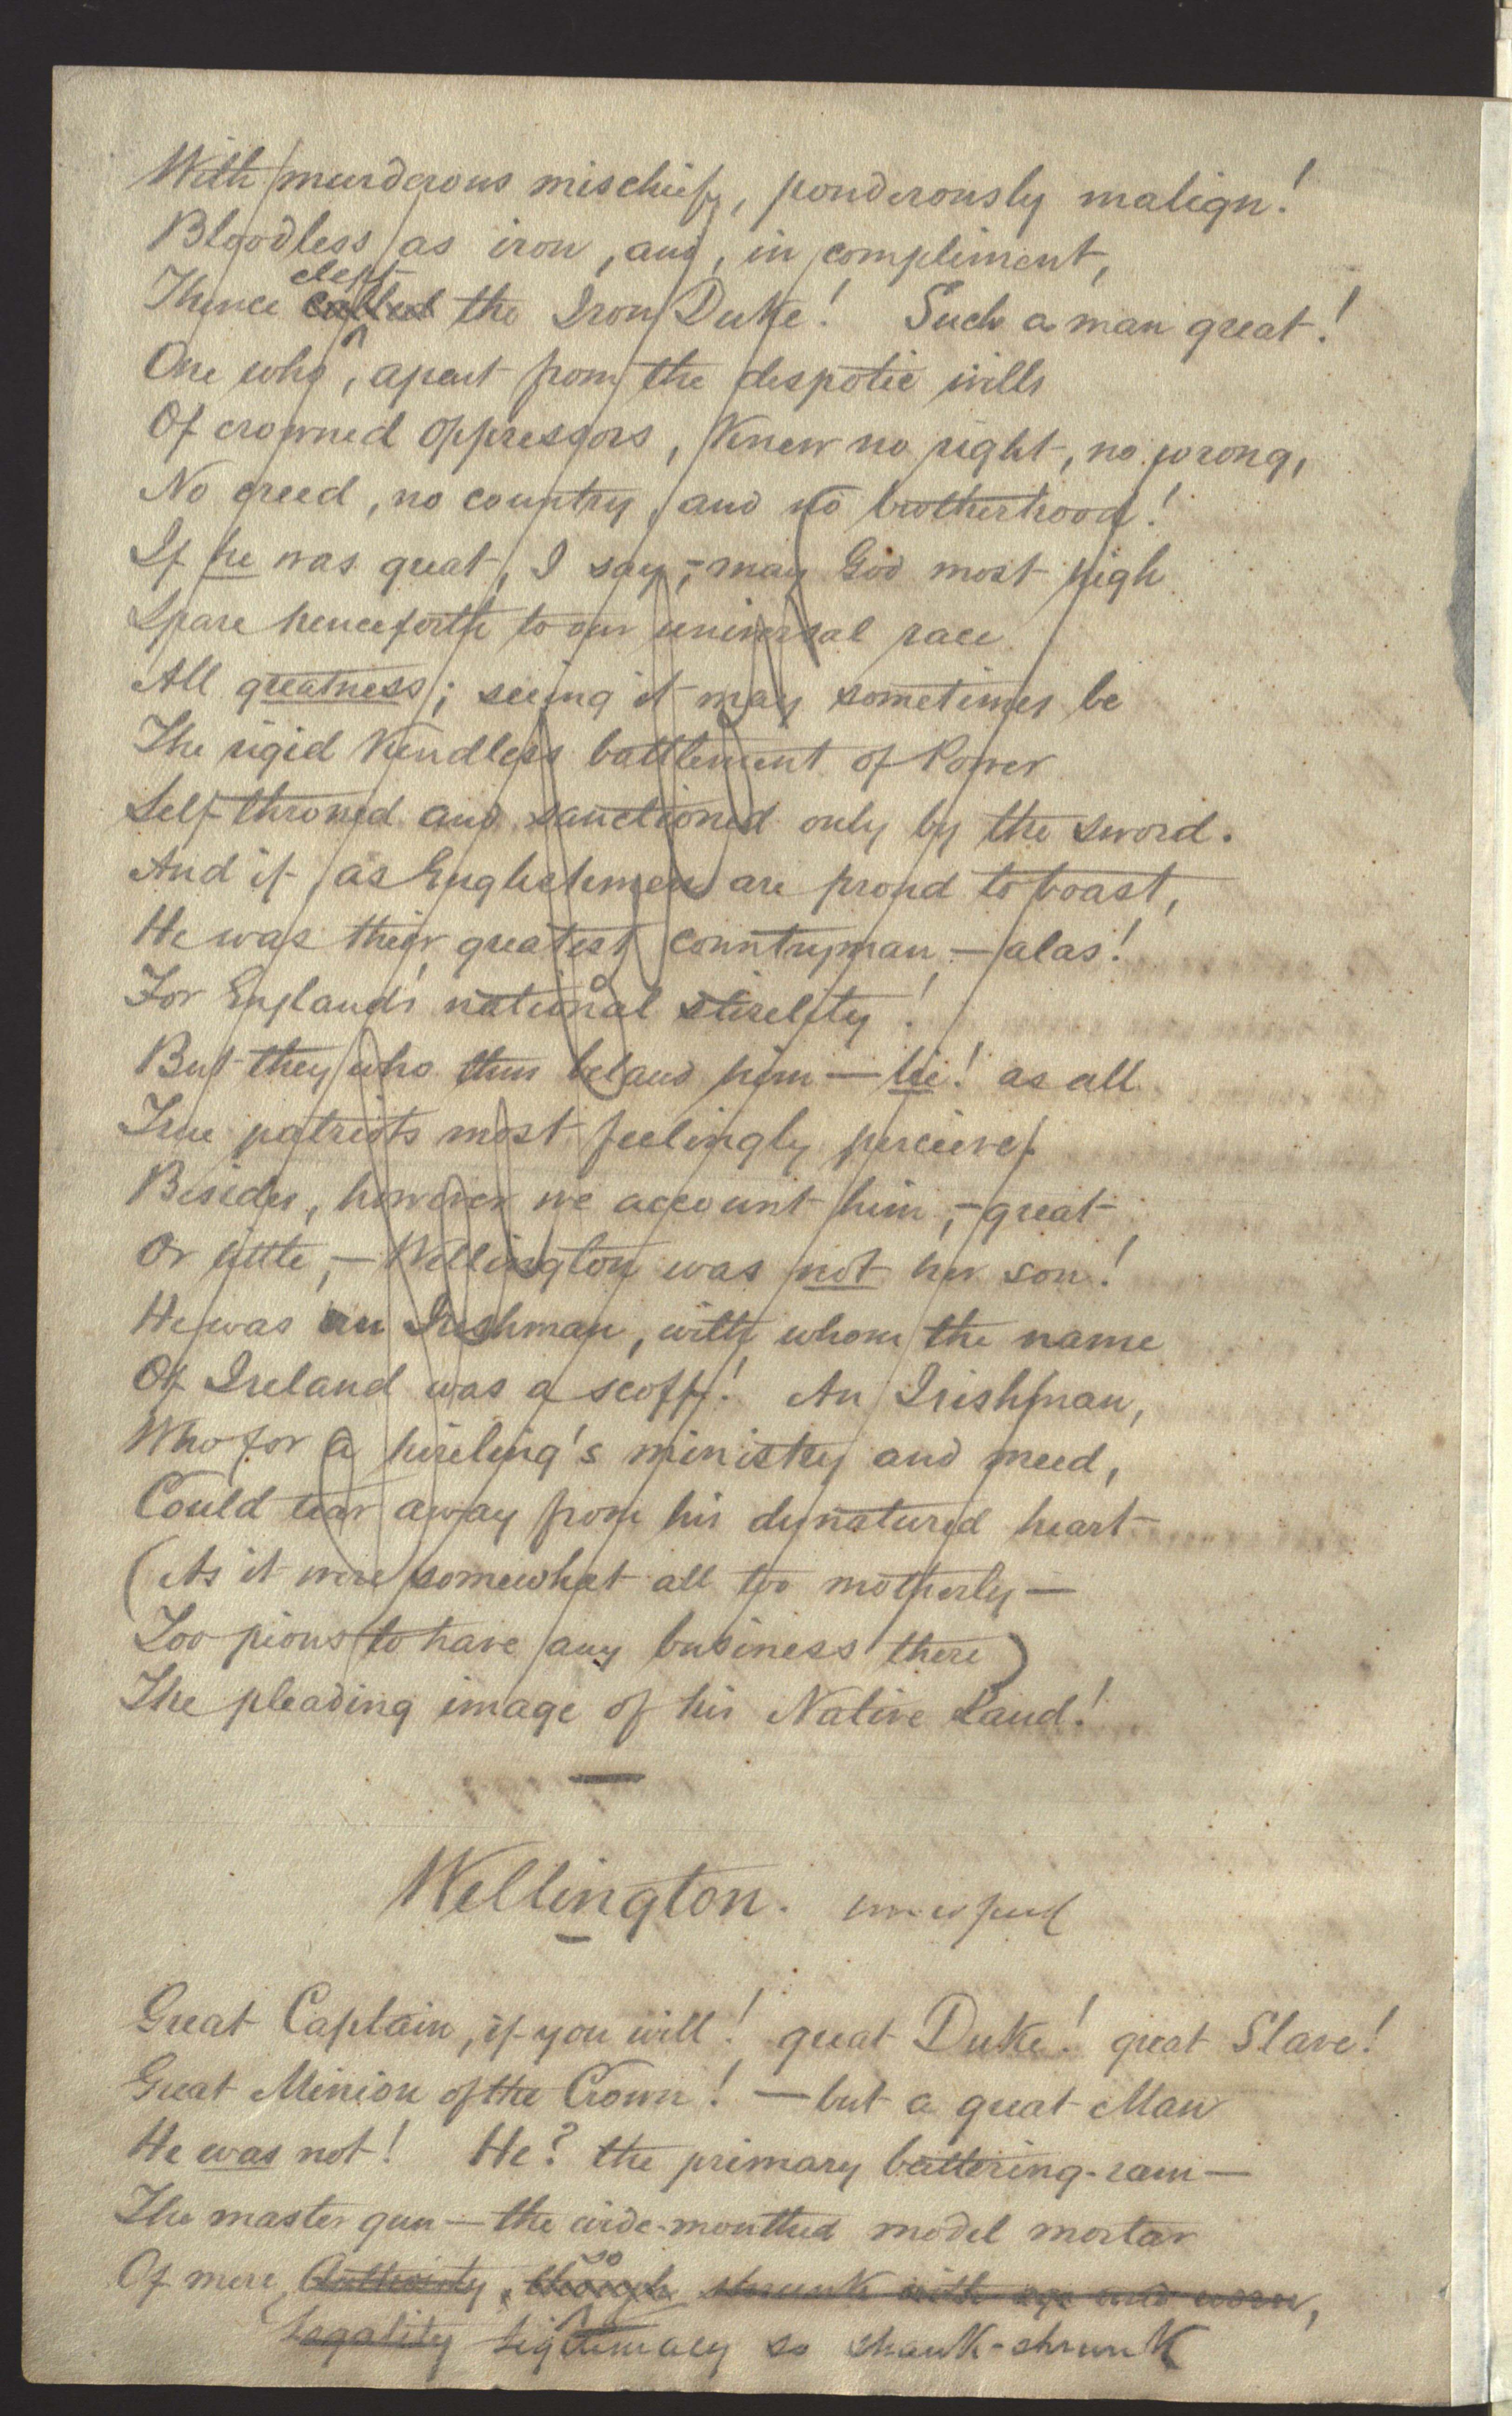 With murderous mischief, ponderously malign!
Bloodless as iron, and, in compliment,
clept
Thence called the Iron Duke! Such a man great!
One who, apart from the despotic wills
Of crowned oppressors, knew no right, no wrong,
No creed, no country, and no brotherhood!
If he was great, I say,—may God most high
Spare henceforth to our universal race
All greatness; seeing it may sometimes be
The rigid kindless battlement of Power
Self-throned and sanctioned only by the sword.
And if as Englishmen are proud to boast,
He was their greatest countryman,—alas!
For England's national sterility!
But they who thus belaud him—lie! as all
True patriots most feelingly perceive.
Besides, however we account him,—great,
Or little,—Wellington was not her son!
He was an Irishman, with whom the name
Of Ireland was a scoff! An Irishman,
Who for a hireling's ministry and meed,
Could tear away from his denatured heart
(As it were somewhat all too motherly—
Too pious to have any business there)
The pleading image of his Native Land!
Wellington.
Great Captain, if you will! great Duke! great Slave!
Great Minion of the Crown!—but a great Man
He was not! He? the primary battering-ram—
The master gun—the wide-mouthed model mortar
so
Of mere Authority, though shrunk with age and worn,
Legality Legitimacy so shank-shrunk